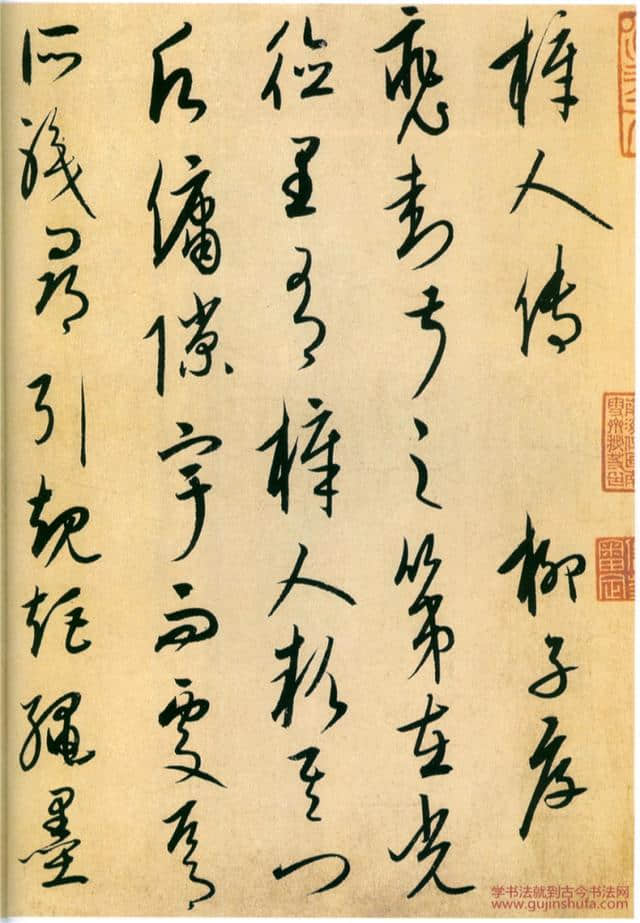 梓人傳 柳子厚
裴封叔之第在光
德里有梓人款其門
願傭隙宇而處焉
所職尋引規矩繩墨
学书法就到古今书法网
www.gujinshufa.com